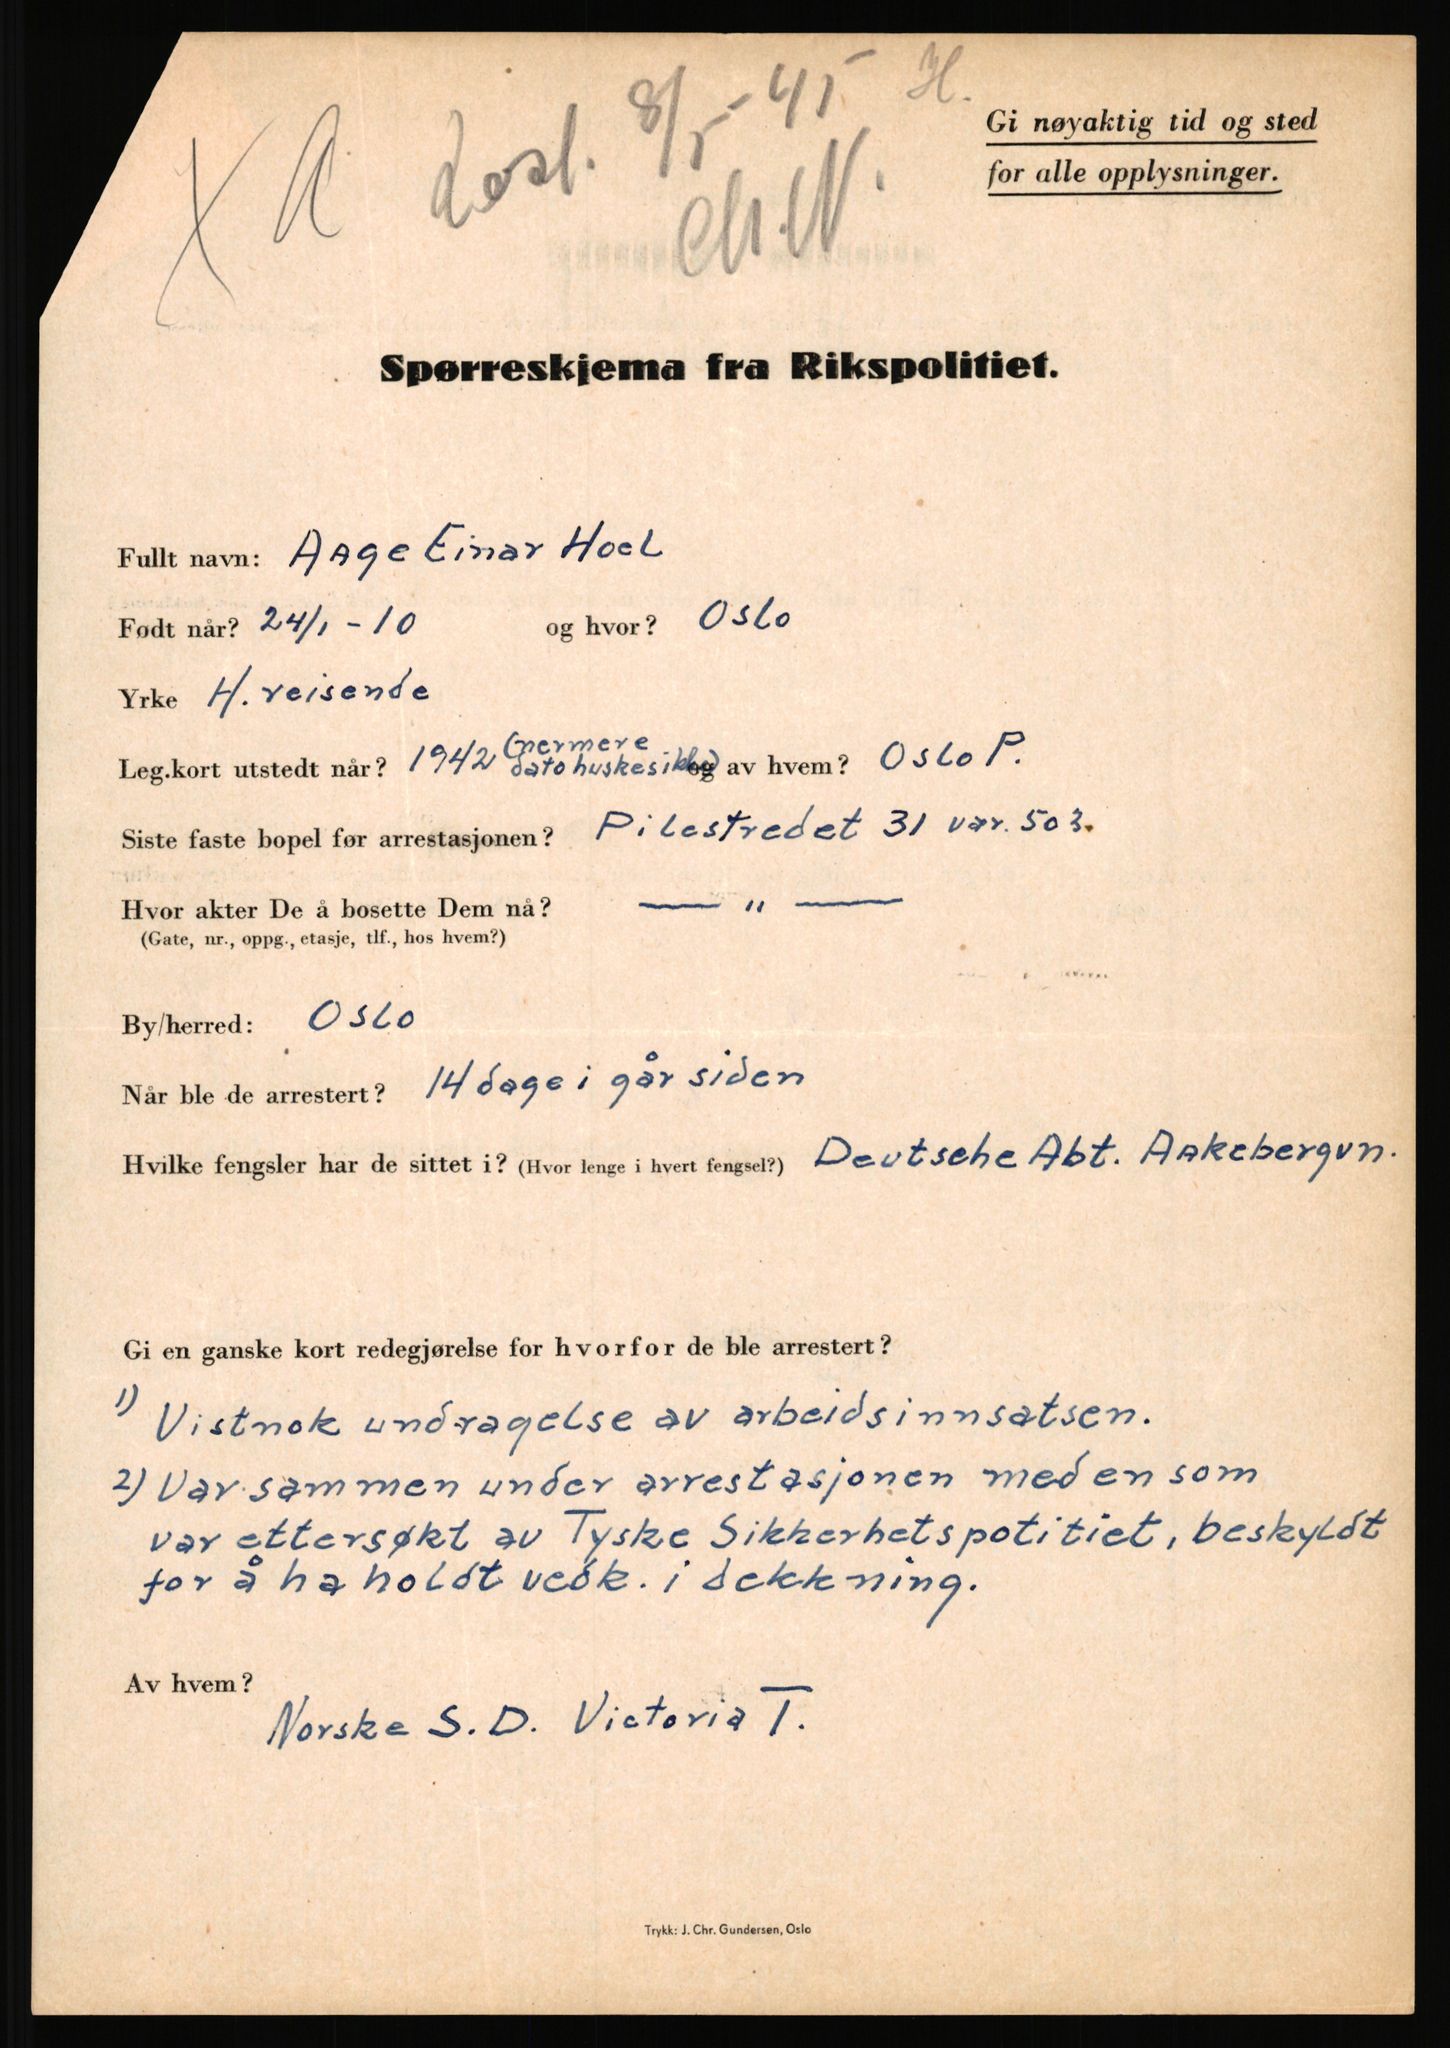 X A Løsl. 8/5-45 H.
Ch.N.
Gi nøyaktig tid og sted
for alle opplysninger.
Spørreskjema fra Rikspolitiet.
Fullt navn: Aage Einar Hoel
Født når? 24/1 - 10 og hvor? Oslo
Yrke H. reisende
Leg.kort utstedt når? 1942 (nermere dato huskes ikke) og av hvem? Oslo P.
Siste faste bopel før arrestasjonen? Pilestredet 31 vær. 503.
Hvor akter De å bosette Dem nå? — " —
(Gate, nr., oppg., etasje, tlf., hos hvem?)
By/herred: Oslo
Når ble de arrestert? 14 dage i går siden
Hvilke fengsler har de sittet i? (Hvor lenge i hvert fengsel?) Deutsche Abt. Aakebergvn.
Gi en ganske kort redegjørelse for hvorfor de ble arrestert?
1) Vistnok undragelse av arbeidsinnsatsen.
2) Var sammen under arrestasjonen med en som
var ettersøkt av Tyske Sikkerhetspolitiet, beskyldt
for å ha holdt vedk. i dekkning.
Av hvem?
Norske S.D. Victoria T.
Trykk: J. Chr. Gundersen, Oslo